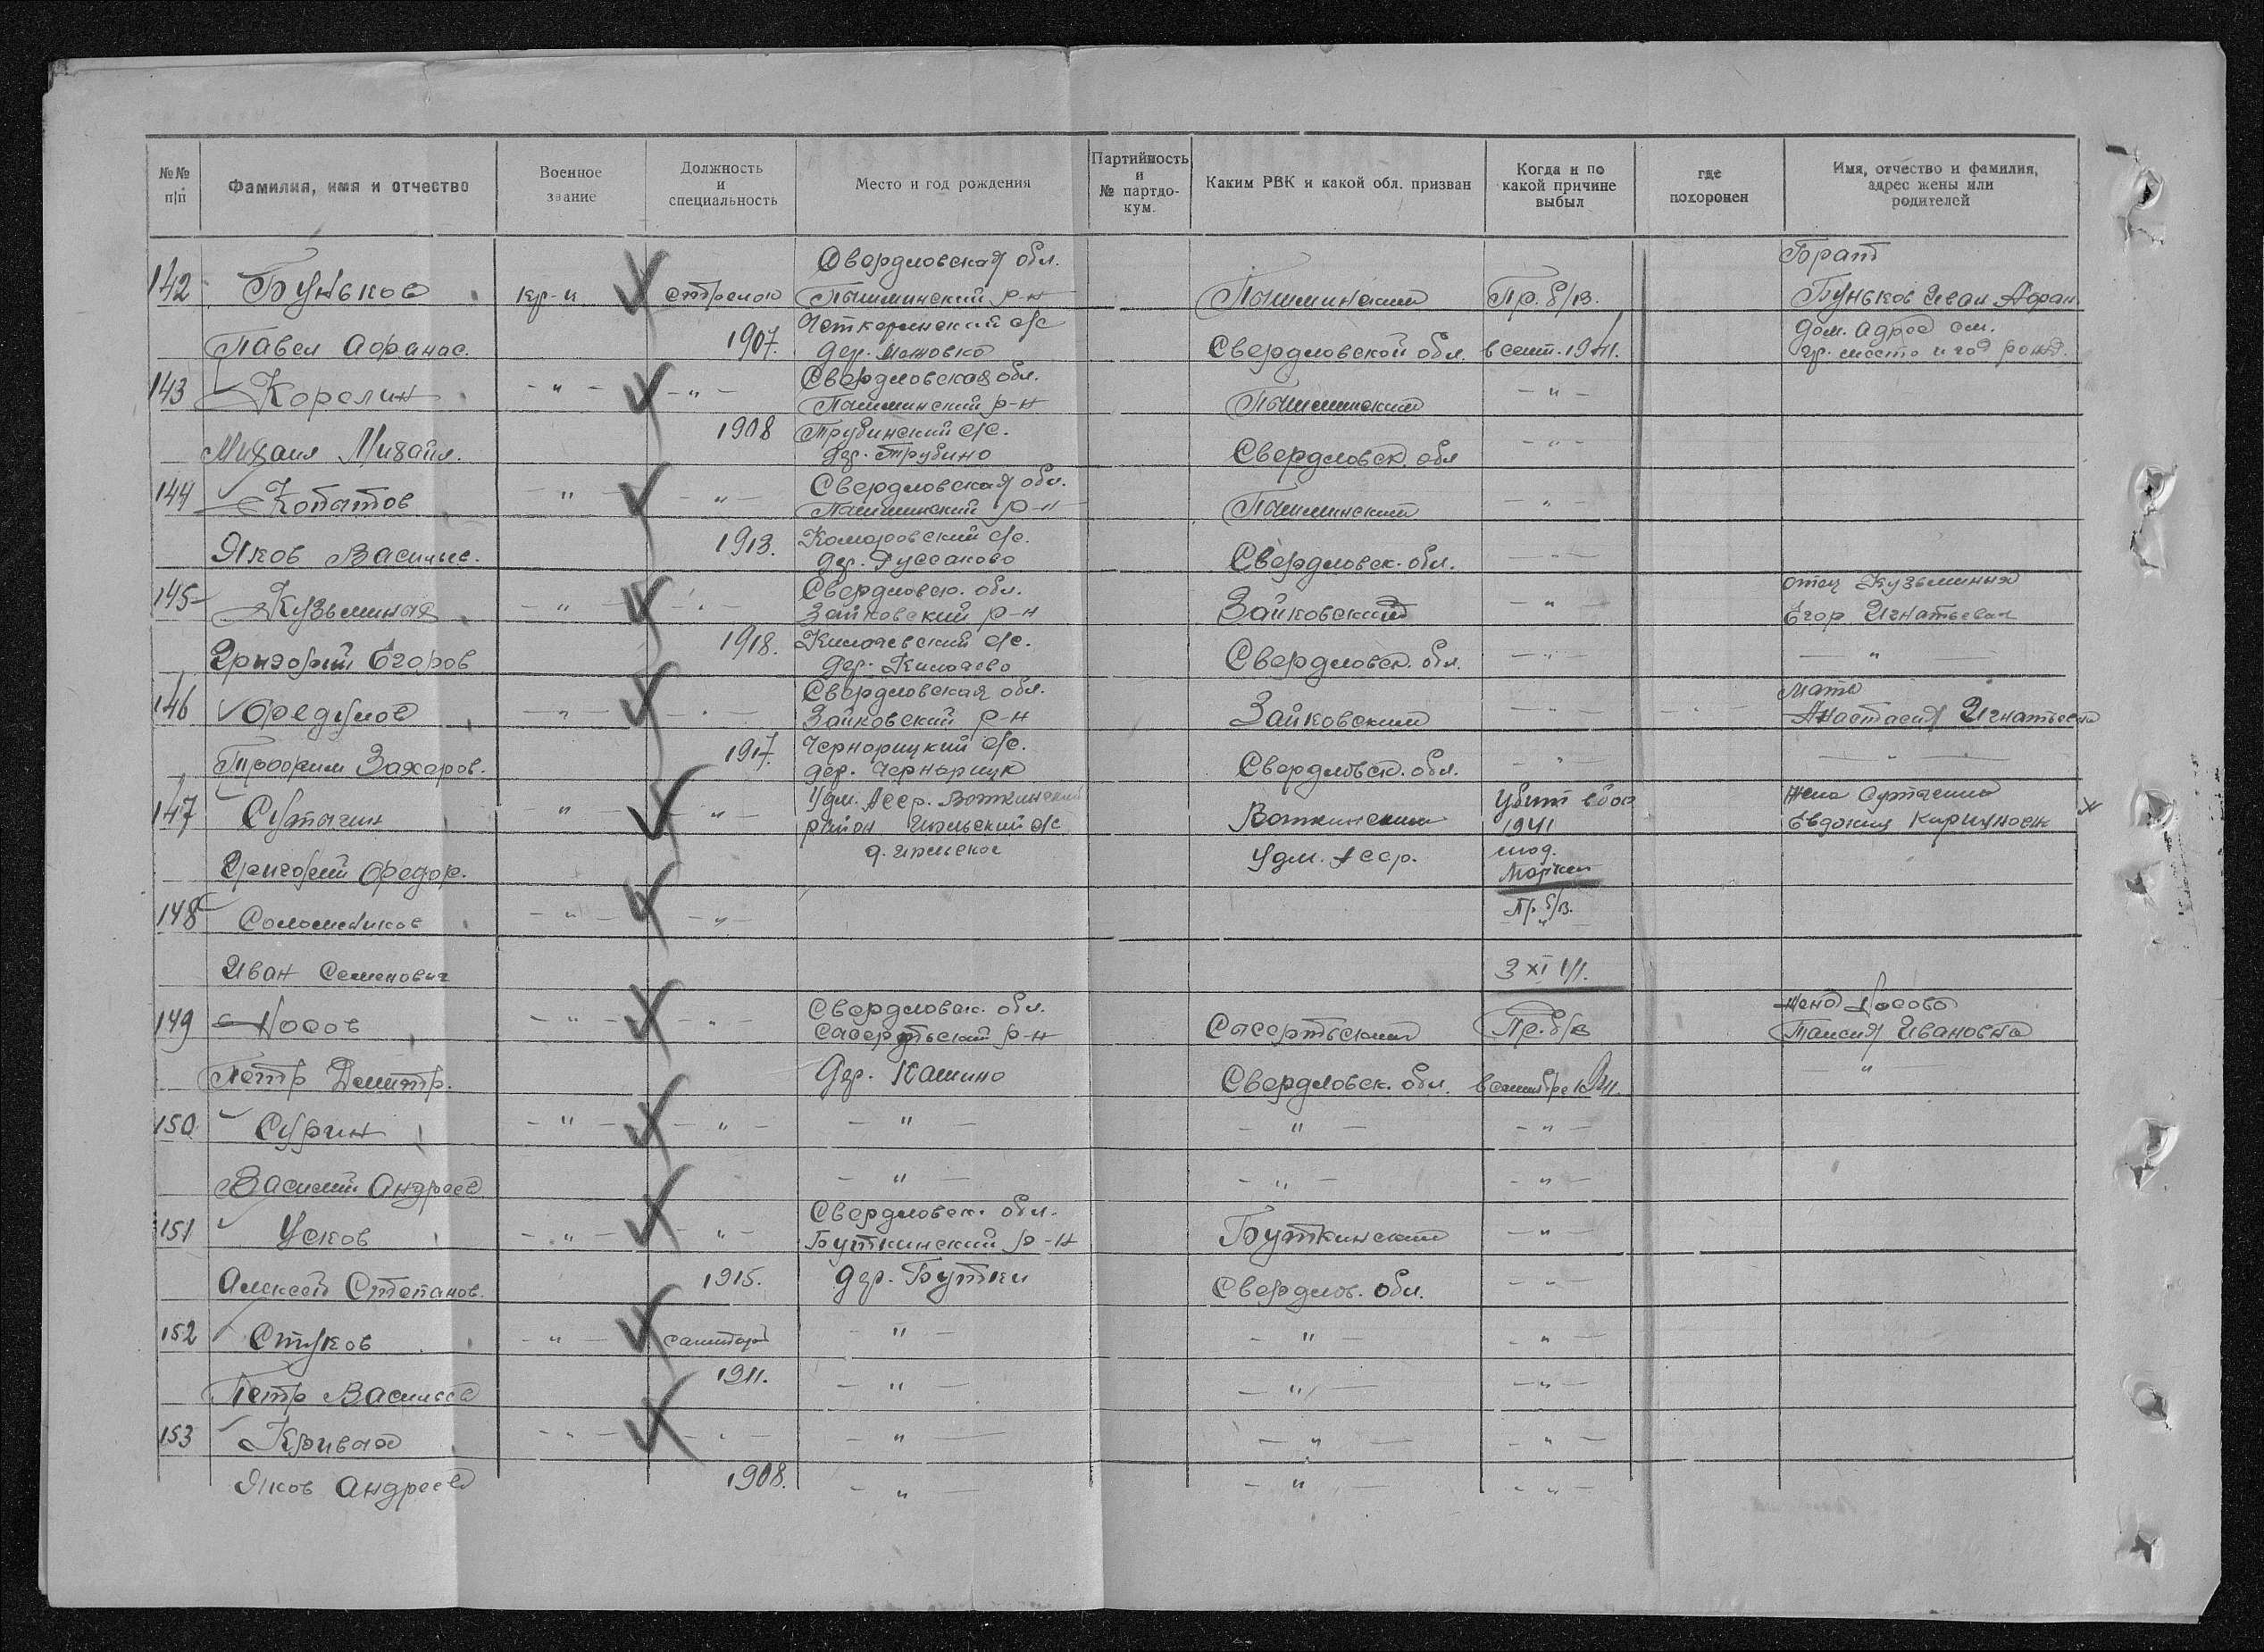 №№ п/п
Фамилия, имя и отчество
Военное звание
Должность и специальность
Место и год рождения
Партийность и № партдокум.
Каким РВК и какой обл. призван
Когда и по какой причине выбыл
где похоронен
Имя, отчество и фамилия, адрес жены или родителей
Свердловская обл. Брат
142 Буньков кр-ц стрелок Пышминский р-н Пышминский Пр. б/в. Буньков Иван Афан.
Четкаринский с/с дом. адрес см.
Павел Афанас. 1907. дер. Свердловской обл. в сент. 1941. гр. место и год рожд.
Свердловская обл.
143 Корелин – " – – " – Пышминский р-н Пышминский – " –
1908 Трубинский с/с.
Михаил Михайл. дер. Трубино Свердловск. обл – " –
Свердловская обл.
144 Копытов – " – – " – Пышминский р-н Пышминский – " –
1913. Комаровский с/с.
Яков Василье. дер. Свердловск. обл. – " –
Свердловск. обл. отец Кузьминых
145 Кузьминых – " – – " – Зайковский р-н Зайковский – " – Егор Игнатьевич
1918. с/с.
Григорий Егоров дер. Свердловск. обл. – " – – " –
Свердловская обл. мать
146 Федулов – " – – " – Зайковский р-н Зайковский – " – – " – Анастасия Игнатьевна
1917. с/с.
Трофим Захаров. дер. Свердловск. обл. – " – – " –
Удм. Асср. Воткинский Убит в бою жена
147 Сутягин – " – – " – район с/с Воткинский 1941 Евдокия
Григорий Федор. д. Удм. Асср.
148 Соломенников – " – – " – Пр. б/в.
Иван Семенович 3 XI 41.
Свердловск. обл. жена Носова
149 Носов – " – – " – р-н Сысертьский Пр. б/в Таисия Ивановна
Петр Дмитр. Дер. Кашино Свердловск. обл. в сентябре 41. – " –
150 Сурин – " – – " – – " – – " – – " –
Василий Андреев – " – – " – – " –
Свердловск. обл.
151 Усков – " – – " – Буткинский р-н Буткинский – " –
Алексей Степанов. 1915. Дер. Бутки Свердлов. обл. – " –
152 Стуков – " – санитар – " – – " – – " –
Петр Васильев 1911. – " – – " – – " –
153 Кривых – " – – " – – " – – " – – " –
Яков Андреев 1908. – " – – " – – " –